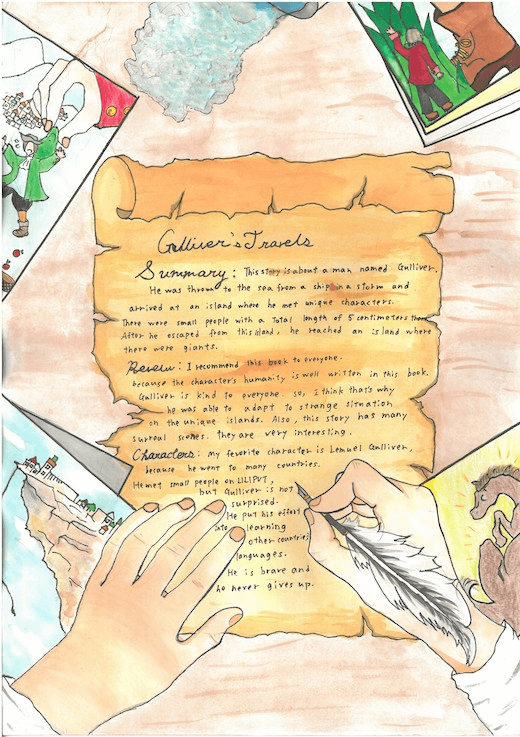 Gulliver's Travels
Summary: This story is about a man named Gulliver.
He was thrown to the sea from a ship in a storm and
arrived at an island where he met unique characters.
There were small people with a total length of 5 centimeters there.
After he escaped from this island, he reached an island where
there were giants.
Review: I recommend this book to everyone.
because the character's humanity is well written in this book.
Gulliver is kind to everyone. so, I think that's why
he was able to adapt to strange situation
on the unique islands. Also, this story has many
surreal scenes. they are very interesting.
Characters: My favorite character is Lemuel Gulliver,
because he went to many countries.
He met small people on LILIPUT,
but Gulliver is not
surprised.
He put his effort
into learning
other countries
languages.
He is brave and
he never gives up.